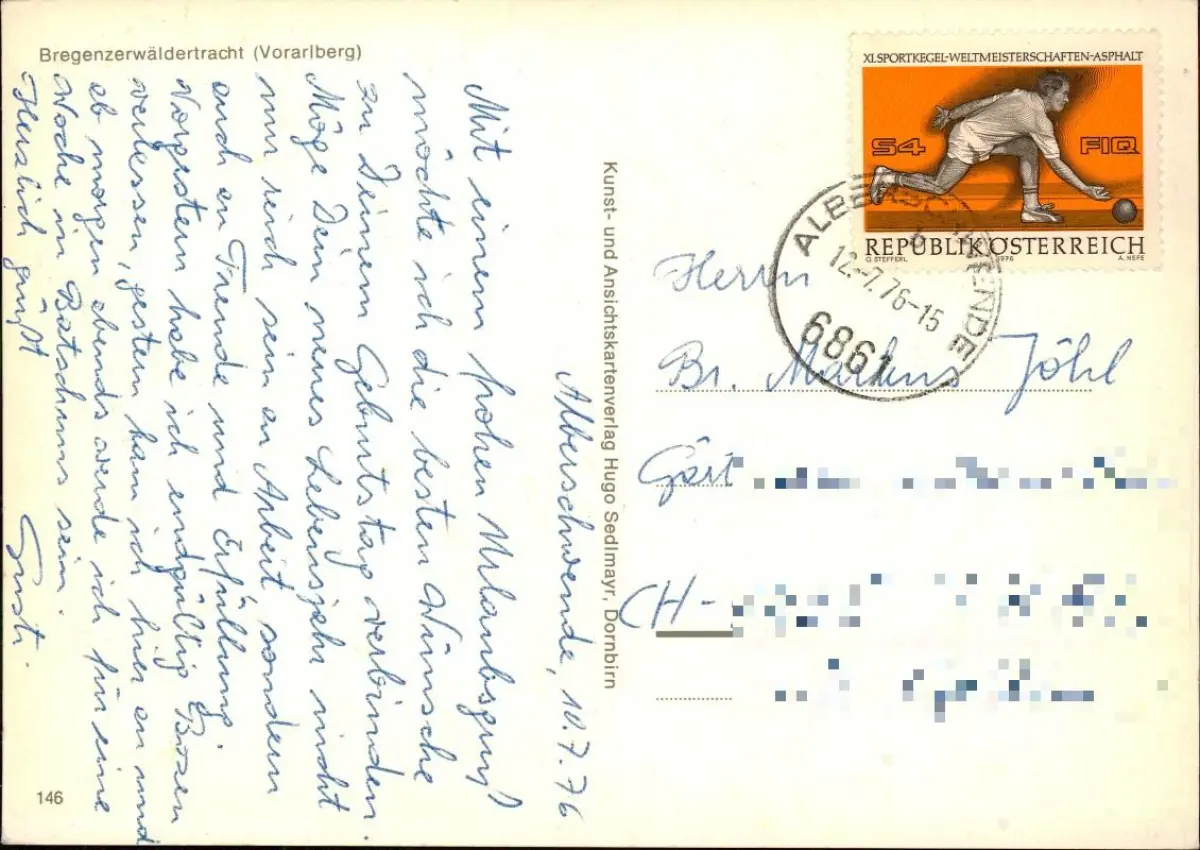 Bregenzerwäldertracht (Vorarlberg)
Alberschwende, 10.7.76
Mit einem frohen Urlaubsgruß
möchte ich die besten Wünsche
zu Deinem Geburtstag verbinden.
Möge Dein neues Lebensjahr nicht
nur reich sein an Arbeit, sondern
auch an Freude und Erfüllung.
Vorgestern habe ich endgültig Bozen
verlassen, gestern kam ich hier an und
ab morgen abends werde ich für eine
Woche in Batschuns sein.
Herzlich grüßt
Gusti.
146
Kunst- und Ansichtskartenverlag Hugo Sedlmayr, Dornbirn
XI. SPORTKEGEL-WELTMEISTERSCHAFTEN-ASPHALT
S4 FIQ
REPUBLIK ÖSTERREICH
G. STEFFERL 1976 A. NEFE
ALBERSCHWENDE
b
12.-7.76-15
6861
Herrn
Br. Markus Jöhl
Gärt
CH-